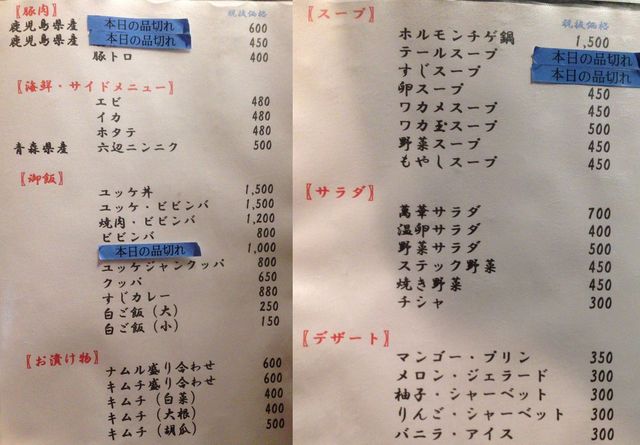 〖豚肉〗
税抜価格
鹿児島県産 本日の品切れ 600
鹿児島県産 本日の品切れ 450
豚トロ 400
〖海鮮・サイドメニュー〗
エビ 480
イカ 480
ホタテ 480
青森県産 六辺ニンニク 500
〖御飯〗
ユッケ丼 1,500
ユッケ・ビビンバ 1,500
焼肉・ビビンバ 1,200
ビビンバ 800
本日の品切れ 1,000
ユッケジャンクッパ 800
クッパ 650
すじカレー 880
白ご飯(大) 250
白ご飯(小) 150
〖お漬け物〗
ナムル盛り合わせ 600
キムチ盛り合わせ 600
キムチ(白菜) 400
キムチ(大根) 400
キムチ(胡瓜) 500
〖スープ〗
税抜価格
ホルモンチゲ鍋 1,500
テールスープ 本日の品切れ
すじスープ 本日の品切れ
卵スープ 450
ワカメスープ 450
ワカ玉スープ 500
野菜スープ 450
もやしスープ 450
〖サラダ〗
萬華サラダ 700
温卵サラダ 400
野菜サラダ 500
ステック野菜 450
焼き野菜 450
チシャ 300
〖デザート〗
マンゴー・プリン 350
メロン・ジェラード 300
柚子・シャーベット 300
りんご・シャーベット 300
バニラ・アイス 300